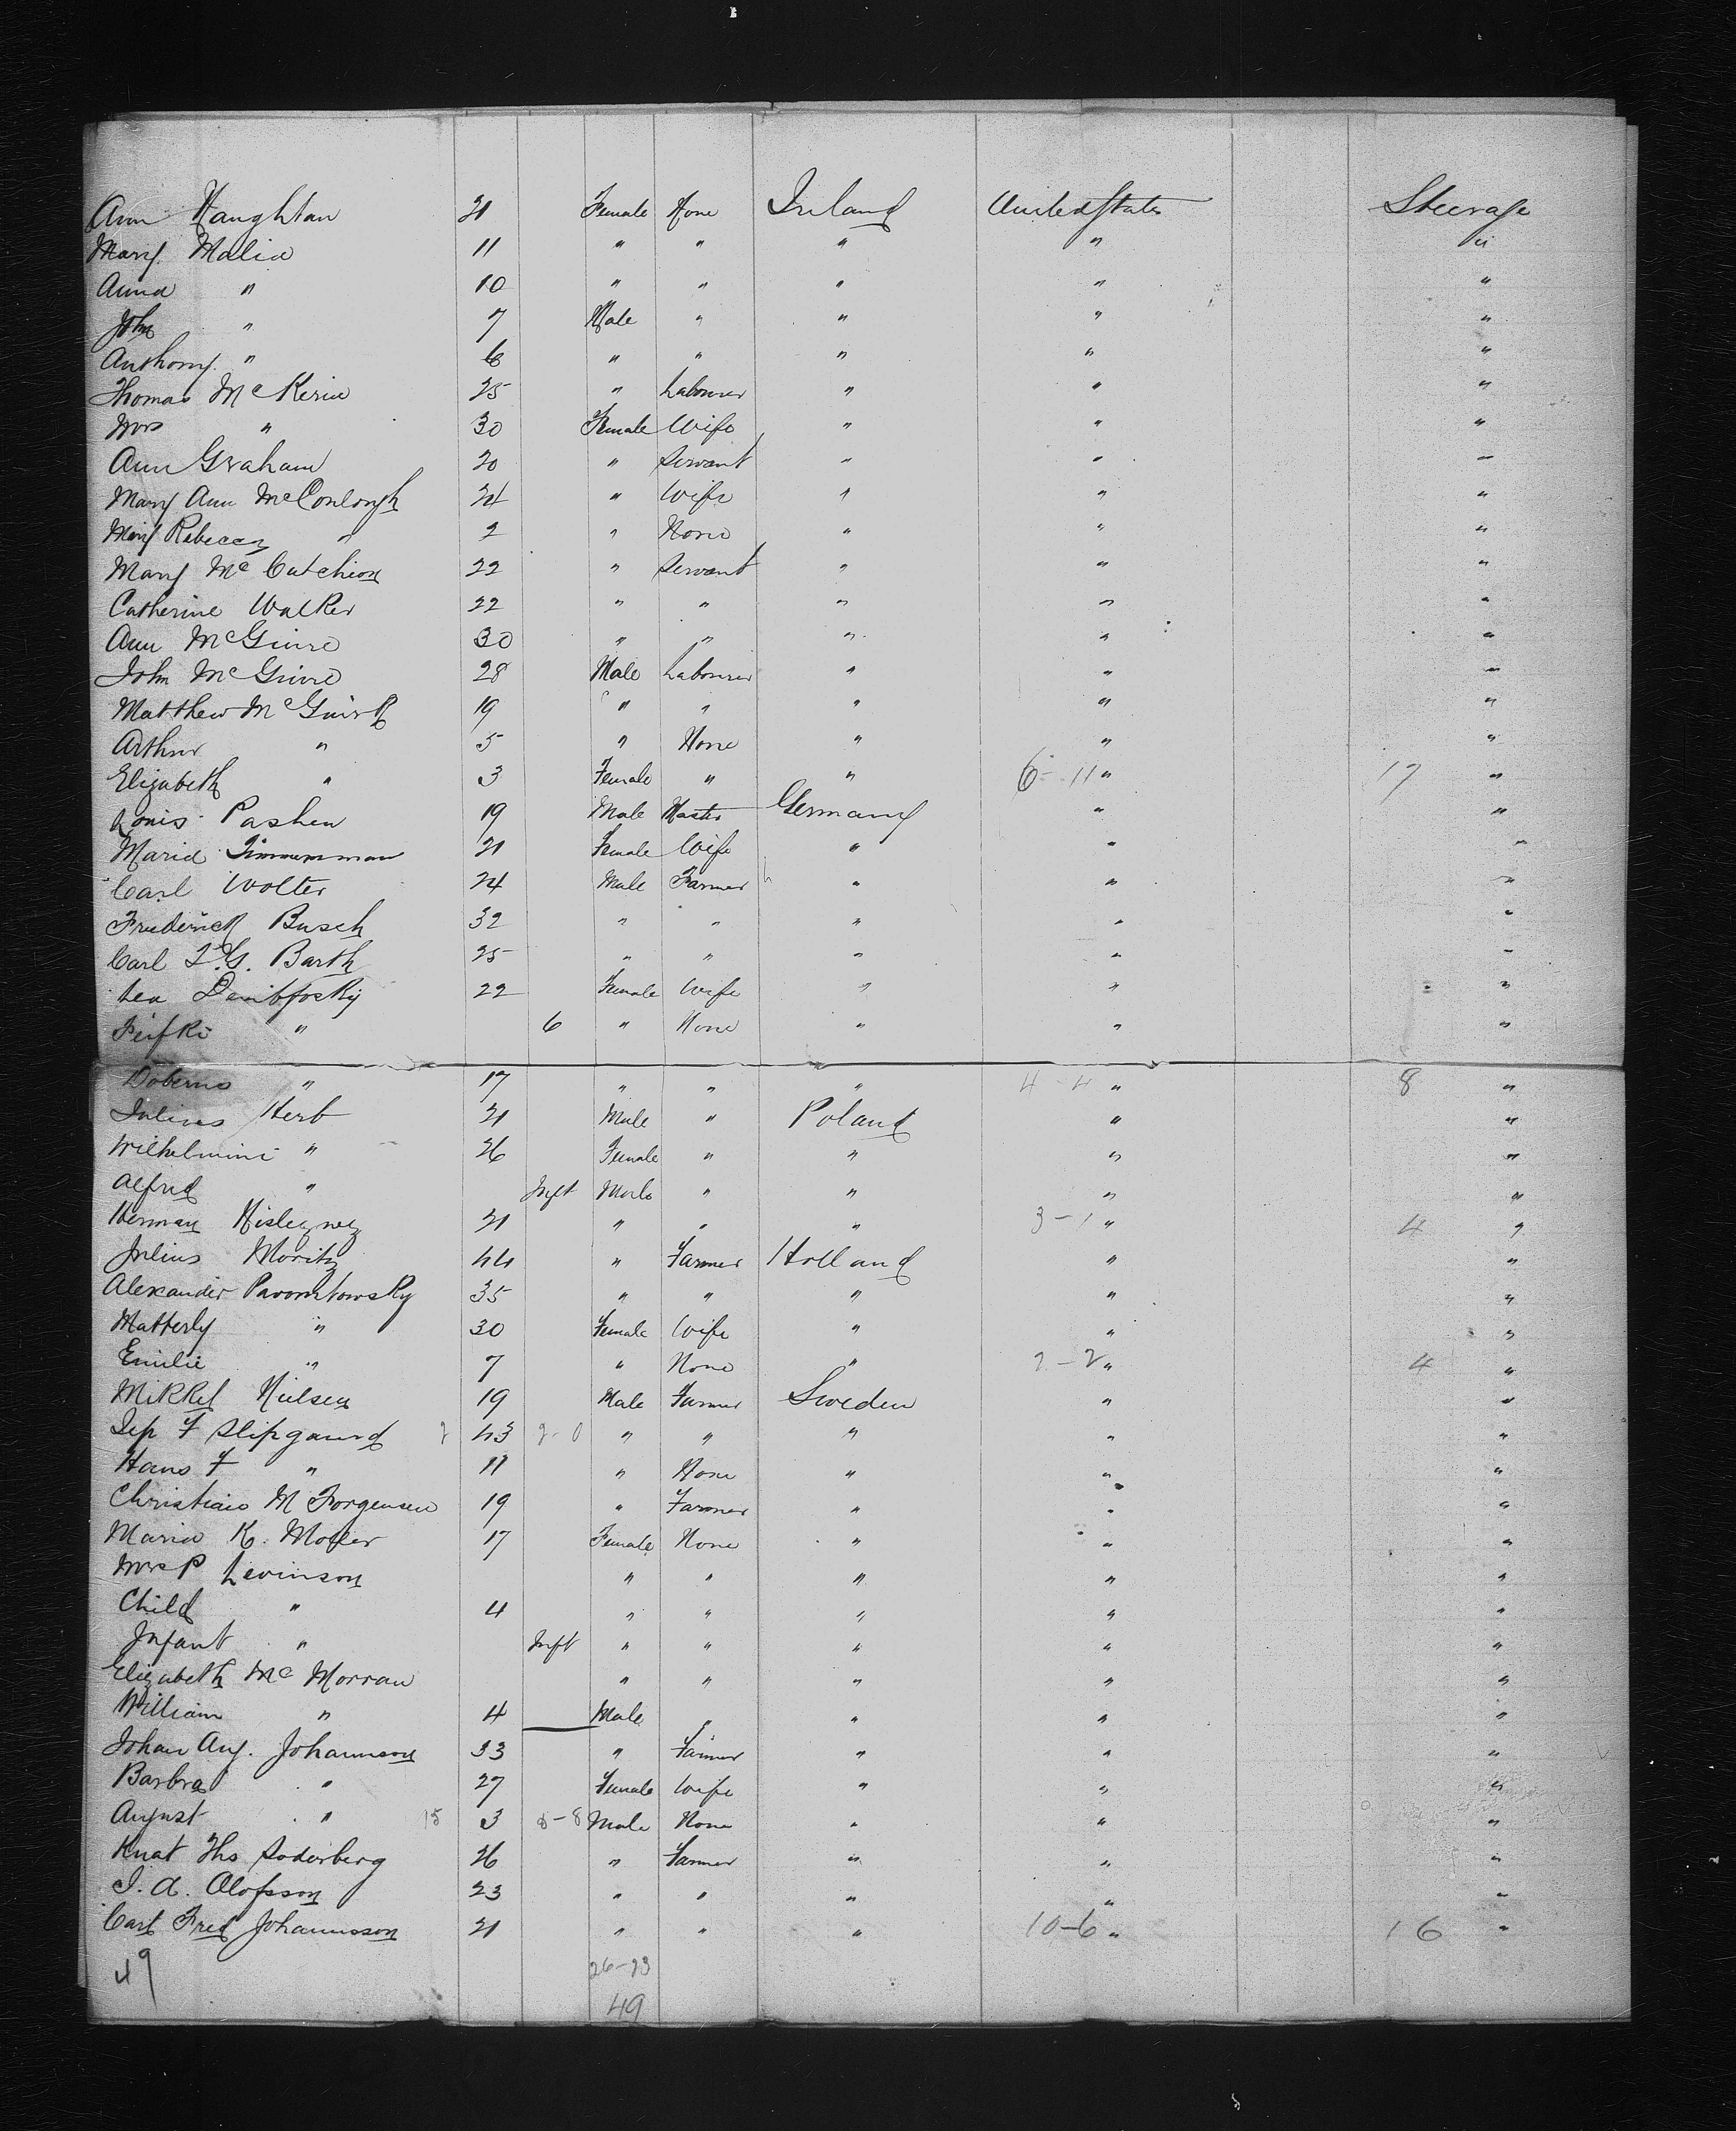 Ann Naughton 21 Female None Ireland United States Steerage
Mary Malia 11 " " " " "
Anna " 10 " " " " "
John " 7 Male " " " "
Anthony " 6 " " " " "
Thomas McKeriw 25 " Labourer " " "
Mrs " 30 Female Wife " " "
Ann Graham 20 " Servant " " "
Mary Ann McConlough 24 " Wife " " "
Mary Rebecca " 2 " None " " "
Mary McCutcheon 22 " Servant " " "
Catherine Walker 22 " " " " "
Ann McGuire 30 " " " " "
John McGuire 28 Male Labourer " " "
Matthew McGuirk 19 " " " " "
Arthur " 5 " None " " "
Elizabeth " 3 Female " " 6-11 " 17 "
Louis Pashen 19 Male Germany " "
Maria Timmerman 21 Female Wife " " "
Carl Wolter 24 Male Farmer " " "
Frederick Busch 32 " " " " "
Carl T.G. Barth 25 " " " " "
Lea 22 Female Wife " " "
Feifki " 6 " None " " "
Doberno " 17 " " " 4-4 " 8 "
Julius Herb 21 Male " Poland " "
Wilhelmini " 26 Female " " " "
Alfred " Inft Male " " " "
Herman 21 " " " 3-1 " 4 "
Julius Moritz 44 " Farmer Holland " "
Alexander 35 " " " " "
Matterly " 30 Female Wife " " "
Emilie " 7 " None " 2-2 " 4 "
Mikkel Nielsen 19 Male Farmer Sweden " "
Jep F Slipgaard 2 43 2-0 " " " " "
Hans F " 11 " None " " "
Christian M Jorgensen 19 " Farmer " " "
Maria K. Moller 17 Female None " " "
Mrs P Levinson " " " " "
Child " 4 " " " " "
Infant " Inft " " " " "
Elizabeth McMorran " " " " "
William " 4 Male " " " "
Johan Aug. Johannson 33 " Farmer " " "
Barbra " 27 Female Wife " " "
August " 15 3 8-8 Male None " " "
Knat Ths Soderberg 26 " Farmer " " "
J. A. Olofsson 23 " " " " "
Carl Fred Johannsson 21 " " " 10-6 " 16 "
49 26-23
49